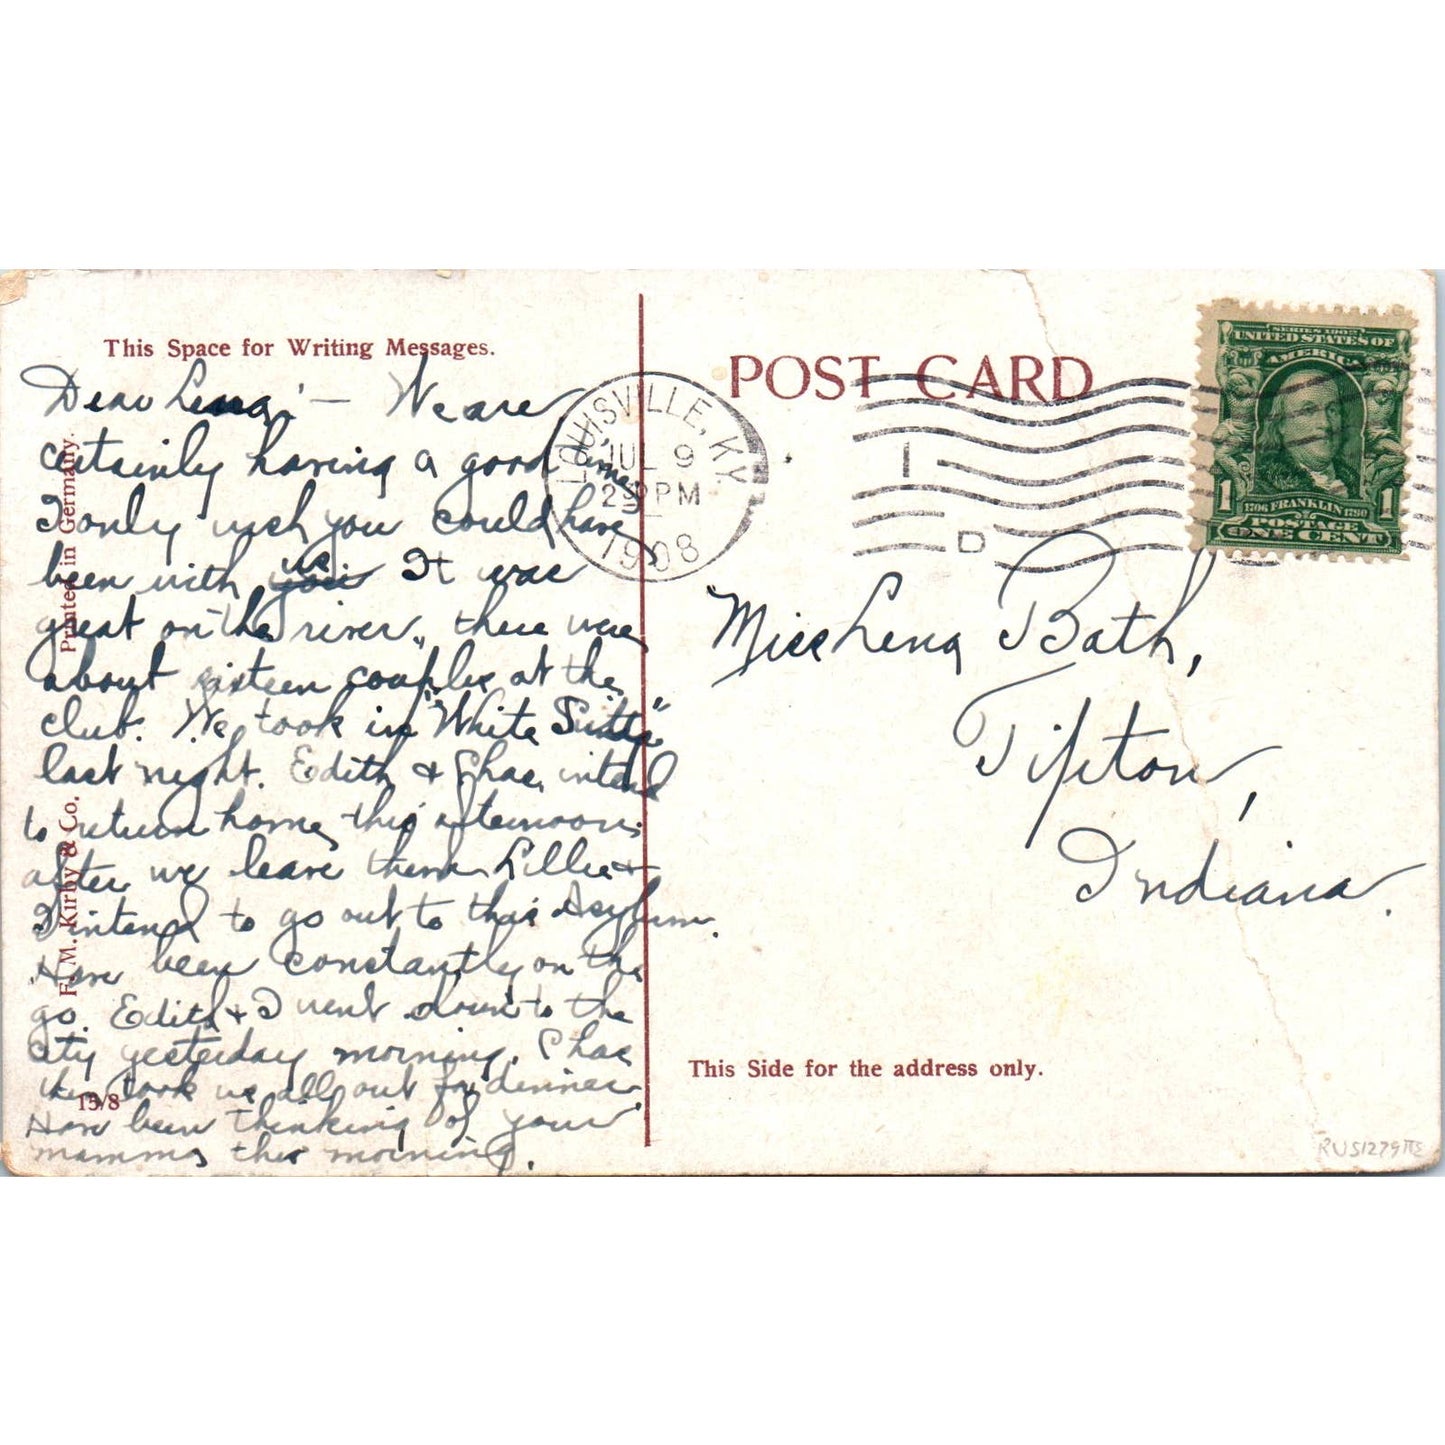 This Space for Writing Messages.
Dear Lena; — We are
certainly having a good time
I only wish you could have
been with you us It was
great on the river, there were
about sixteen couples at the
club. We took in "White
last night. Edith & Chas. intend
to return home this afternoon;
after we leave them Lillie &
I intend to go out to this Asylum.
Have been constantly on the
go. Edith & I went down to the
city yesterday morning. Chas
then took us all out for dinner.
Have been thinking of your
mamma this morning.
Printed in Germany.
F. M. Kirby & Co.
POST CARD
LOUISVILLE, KY.
JUL 9
PM
1908
1
D
SERIES 1902
UNITED STATES OF
AMERICA
1706 FRANKLIN 1790
POSTAGE
1 1
ONE CENT
Miss Lena Bath,
Tipton,
Indiana.
This Side for the address only.